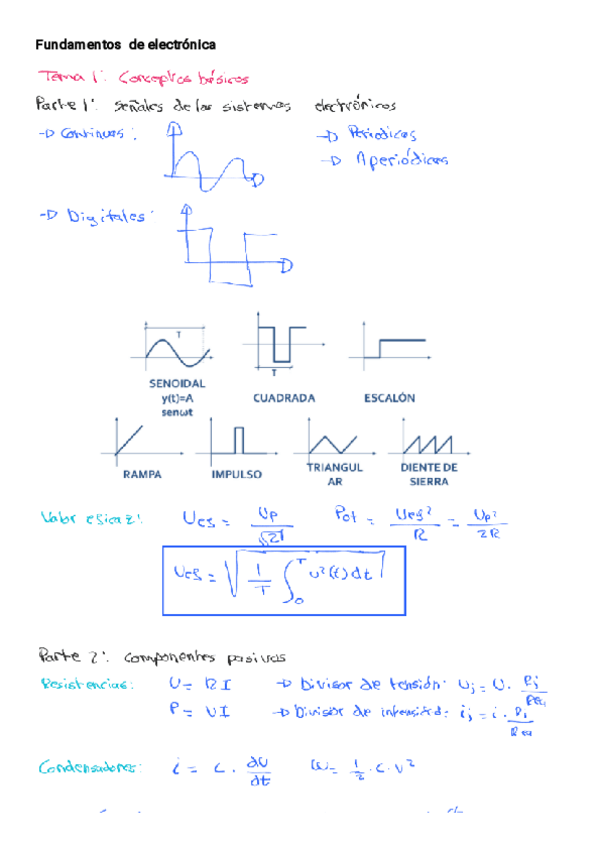 Fundamentos de electrónica
Tema 1: Conceptos básicos
Parte 1: Señales de los sistemas electrónicos
→ Continuas: → Periodicas
→ Aperiódicas
→ Digitales:
T
T
SENOIDAL
y(t)=A
senωt
CUADRADA
ESCALÓN
RAMPA
IMPULSO
TRIANGUL
AR
DIENTE DE
SIERRA
Valor eficaz: Uef = Up/√2 Pot = Uef²/R = Up²/2R
Uef = √(1/T ∫₀ᵀ u²(t)dt)
Parte 2: Componentes pasivos
Resistencias: U = RI → Divisor de tensión: Uj = U · Rj/Req
P = UI → Divisor de intensidad: ij = i · Rj/Req
Condensadores: i = C · dU/dt W = 1/2 · C · V²